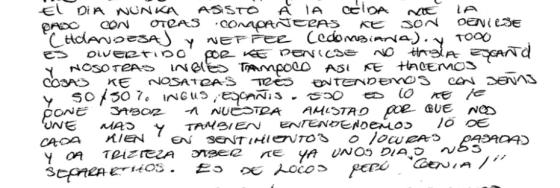 EL DIA NUNCA ASISTO A LA CELDA ME LA
PASO CON OTRAS COMPAÑERAS KE SON DENICSE
(HOLANDESA) Y NEFFER (COLOMBIANA). Y TODO
ES DIVERTIDO POR KE DENICSE NO HABLA ESPAÑOL
Y NOSOTRAS INGLES TAMPOCO ASI KE HACEMOS
COSAS KE NOSATRAS TRES ENTENDEMOS CON SEÑAS
Y 50/50% INGLIS, ESPAÑIS. ESO ES LO KE LE
PONE SABOR A NUESTRA AMISTAD POR QUE NOS
UNE MAS Y TAMBIEN ENTENDENDEMOS LO DE
CADA KIEN EN SENTIMIENTOS O LOCURAS PASADAS
Y DA TRIZTEZA SABER KE YA UNOS DIAS NOS
SEPARARTMOS. ES DE LOCOS PERO "GENIAL"